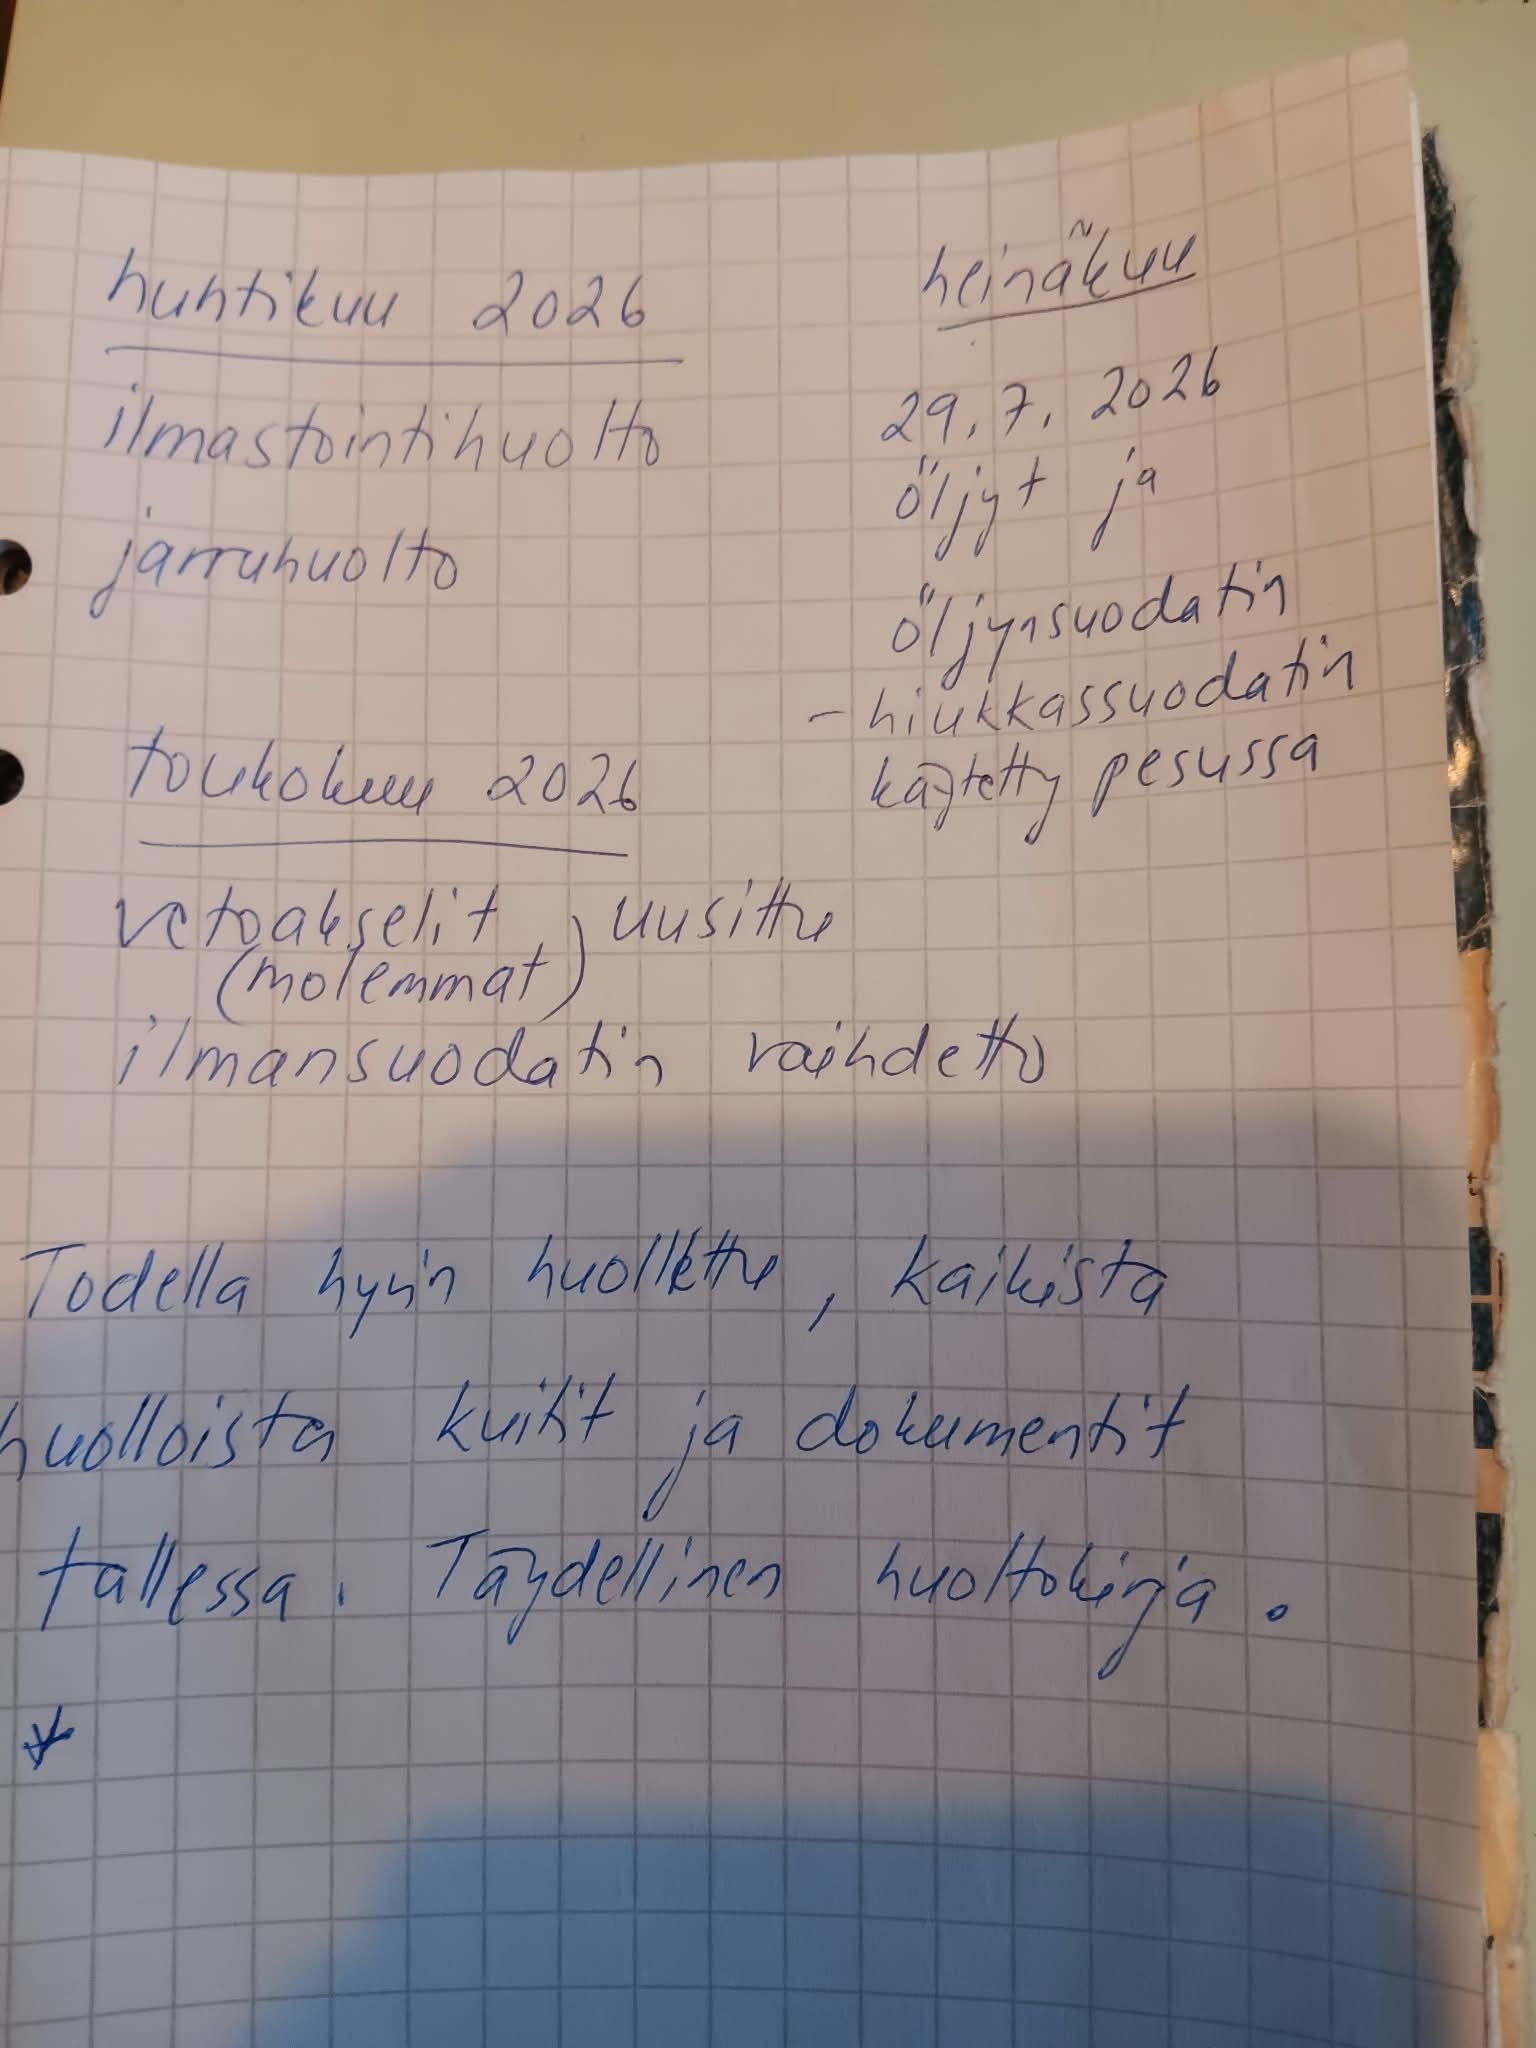 huhtikuu 2026
ilmastointihuolto
jarruhuolto
toukokuu 2026
vetoakselit uusittu
(molemmat)
ilmansuodatin vaihdetto
heinäkuu
29.7.2026
öljyt ja
öljynsuodatin
- hiukkassuodatin
käytetty pesussa
Todella hyvin huollettu, kaikista
huolloista kuitit ja dokumentit
tallessa. Täydellinen huoltokirja.